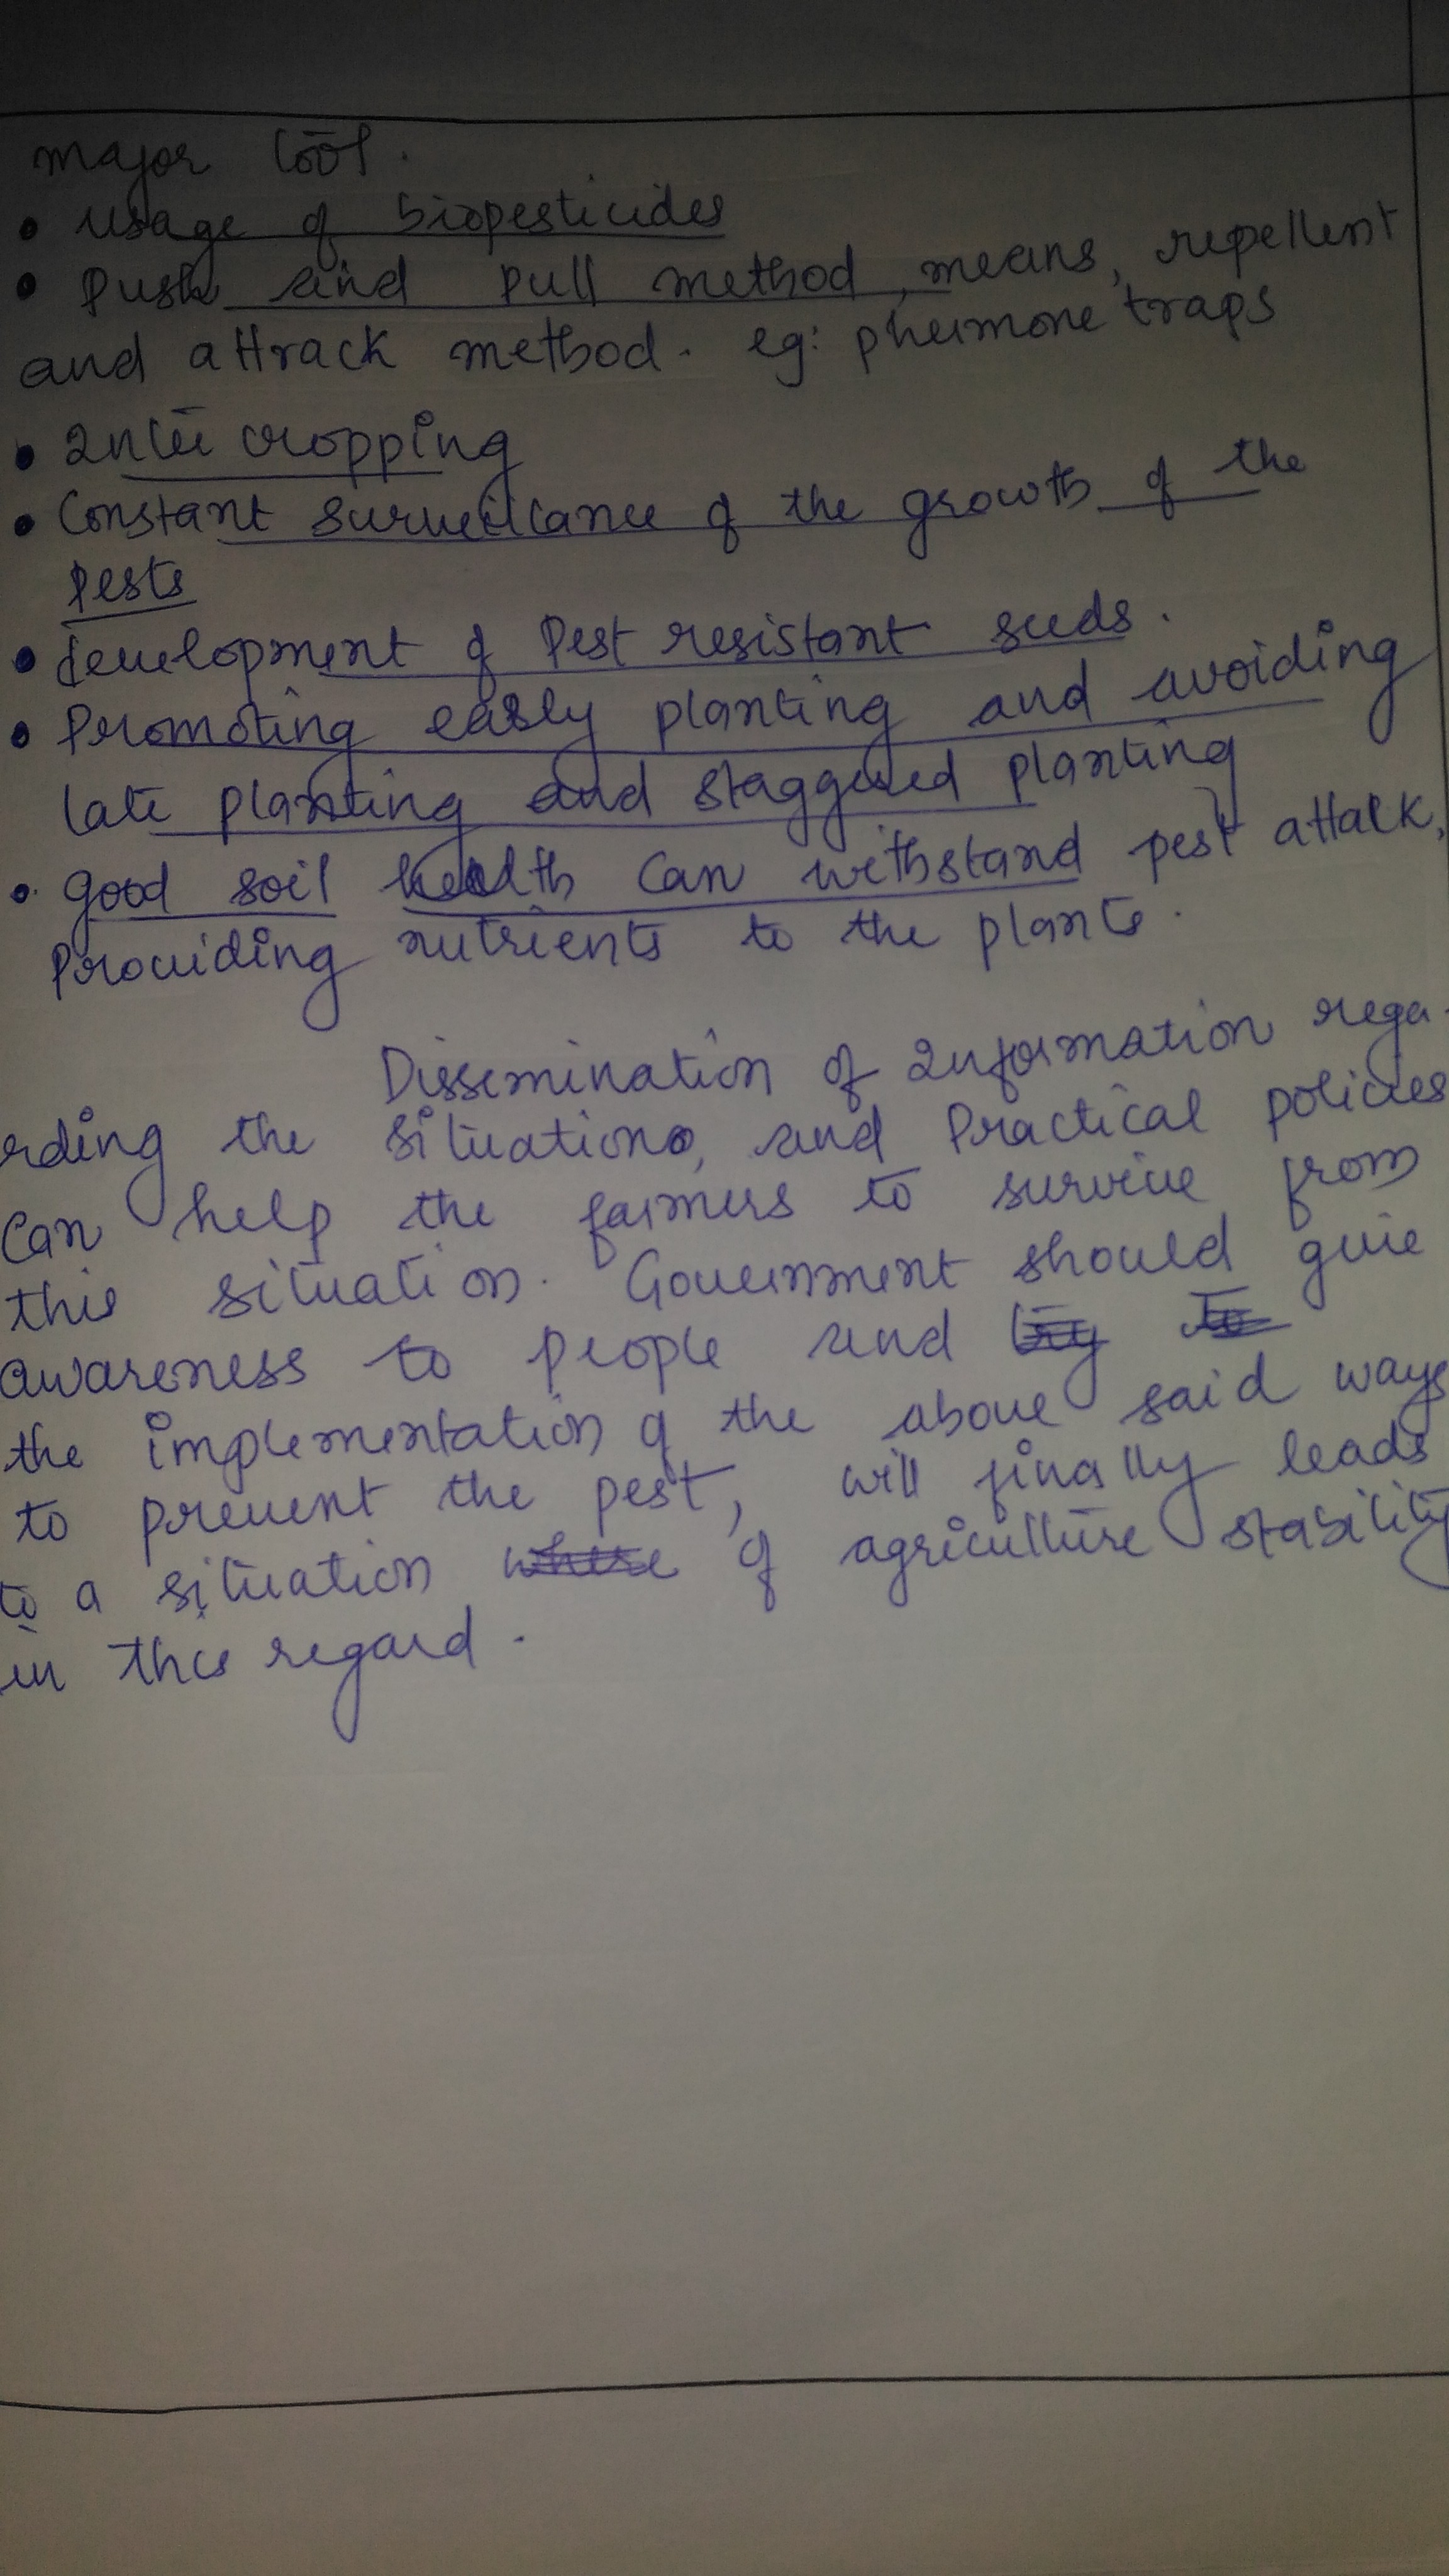 major tool.
• Usage of biopesticides
• Push and Pull method, means, repellent
and attrack method. eg: phermone traps
• Inter cropping
• Constant surveillance of the growth of the
Pests
• development of Pest resistant seeds.
• Promoting early planting and avoiding
late planting and staggered planting
• good soil health can withstand pest attack,
Providing nutrients to the plants.
Dissemination of Information rega-
rding the situation, and Practical policies
can help the farmers to survive from
this situation. Government should give
awareness to people and try to
the implementation of the above said ways
to prevent the pest, will finally leads
to a situation where of agriculture stability
in this regard.